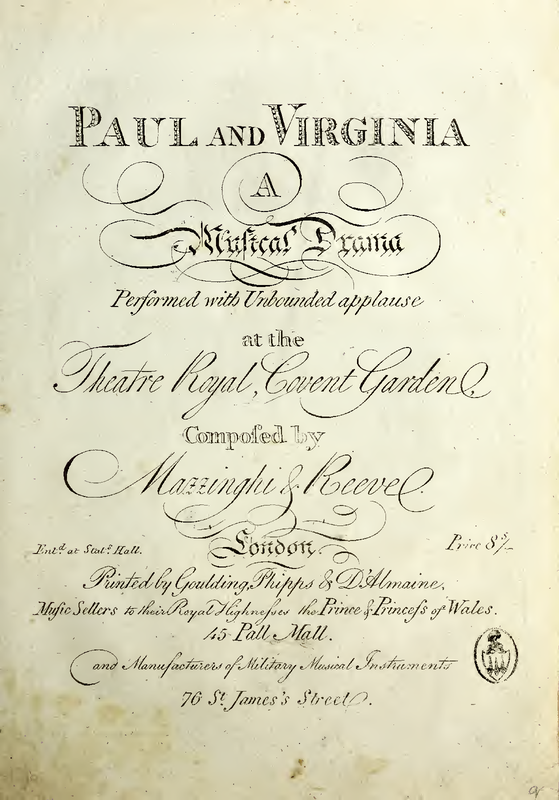 PAUL AND VIRGINIA
A
Musical Drama
Performed with Unbounded applause
at the
Theatre Royal, Covent Garden
Compoſed by
Mazzinghi & Reeve.
London.
Ent.d at Stat.s Hall.
Price 8s/-
Printed by Goulding, Phipps & D'Almaine.
Muſic Sellers to their Royal Highneſſes the Prince & Princeſs of Wales.
45 Pall Mall.
and Manufacturers of Military Musical Instruments
76 St. James's Street.